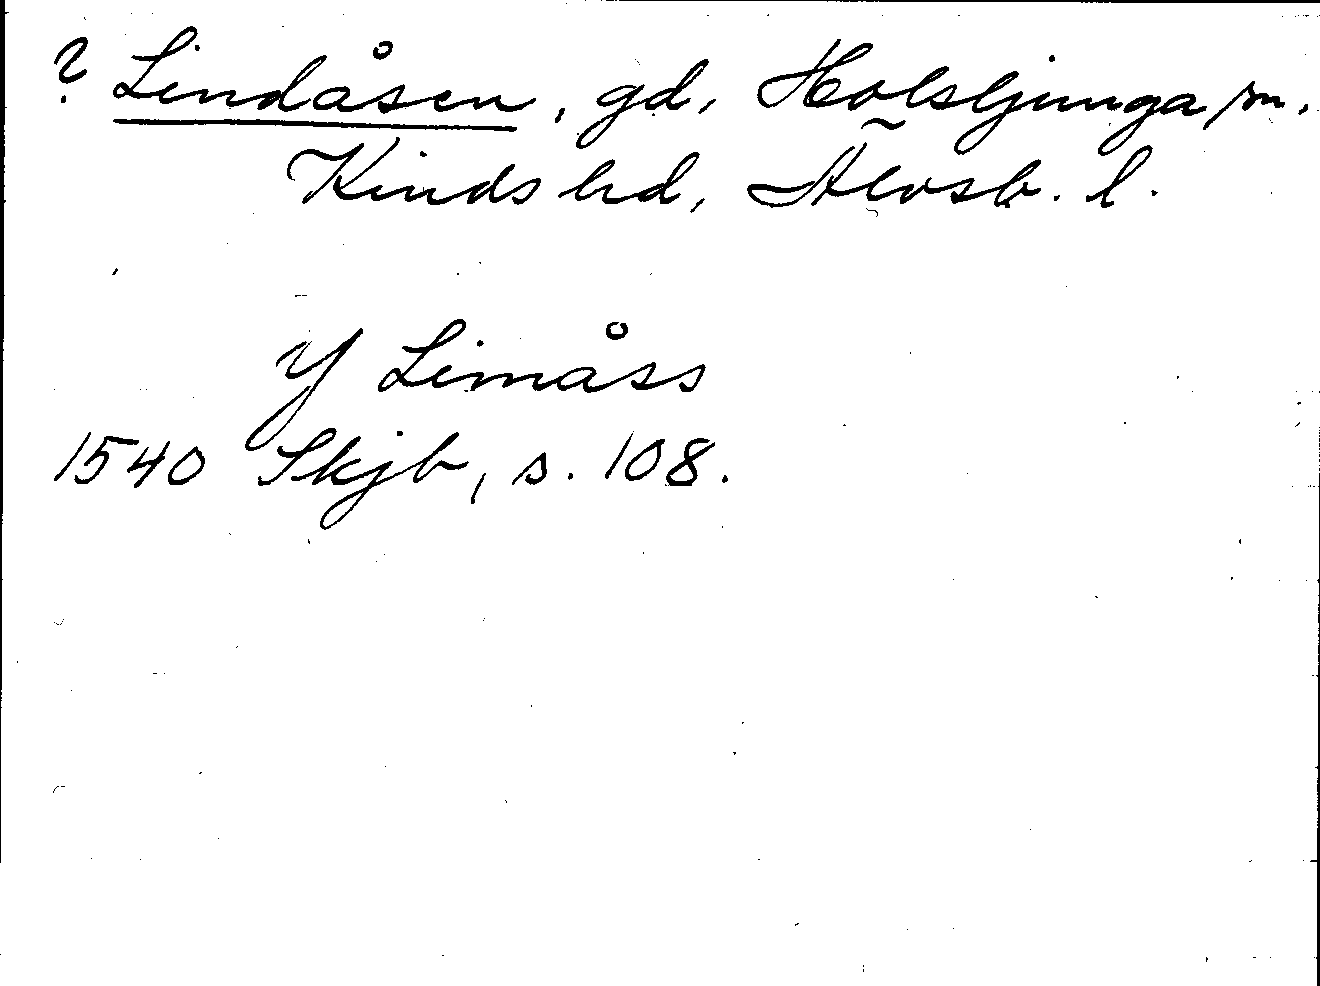 ? Lindåsen, gd, Holsljunga sn.
Kinds hd, Älvsb. l.
Y Limåss
1540 Skjb, s. 108.